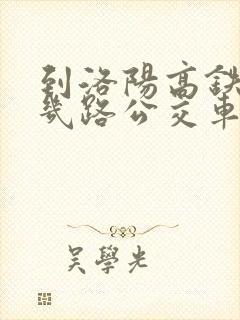 到洛陽高鉄
幾路公交車
吴學光